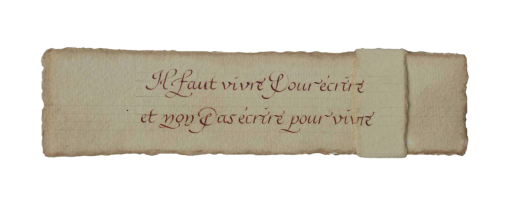 Il faut vivre Pour écrire
et non Pas écrire pour vivre